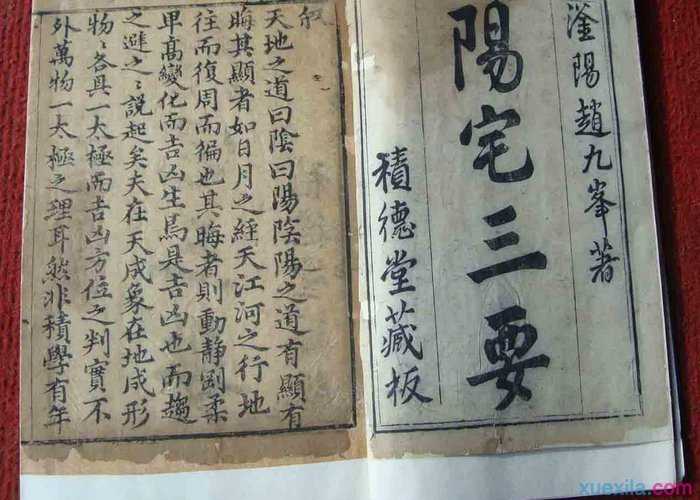 滏陽趙九峯著
陽宅三要
積德堂藏板
叙
天地之道曰陰曰陽陰陽之道有顯有
晦其顯者如日月之經天江河之行地
往而復周而徧也其晦者則動靜剛柔
卑高變化而吉凶生焉是吉凶也而趨
之避之之說起矣夫在天成象在地成形
物物各具一太極而吉凶方位之判實不
外萬物一太極之理耳然非積學有年
xuexila.com